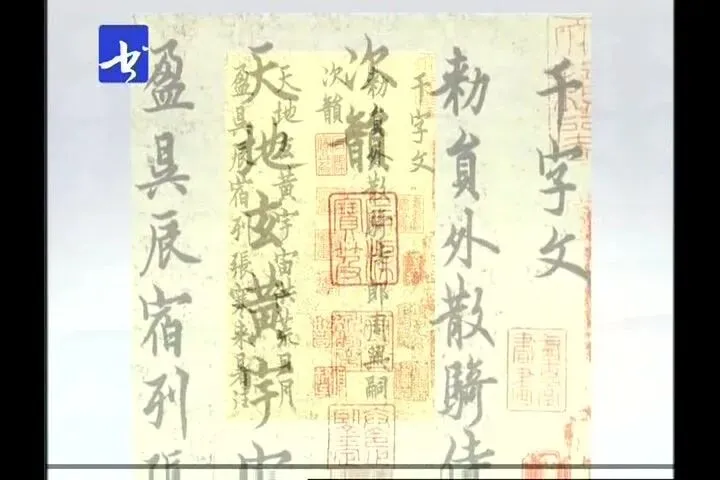 书
千字文
勑員外散騎侍
次韻
天地玄黃宇宙
盈昃辰宿列張
千字文
勑員外散騎侍郎周興嗣
次韻
天地玄黃宇宙洪荒日月
盈昃辰宿列張寒來暑往